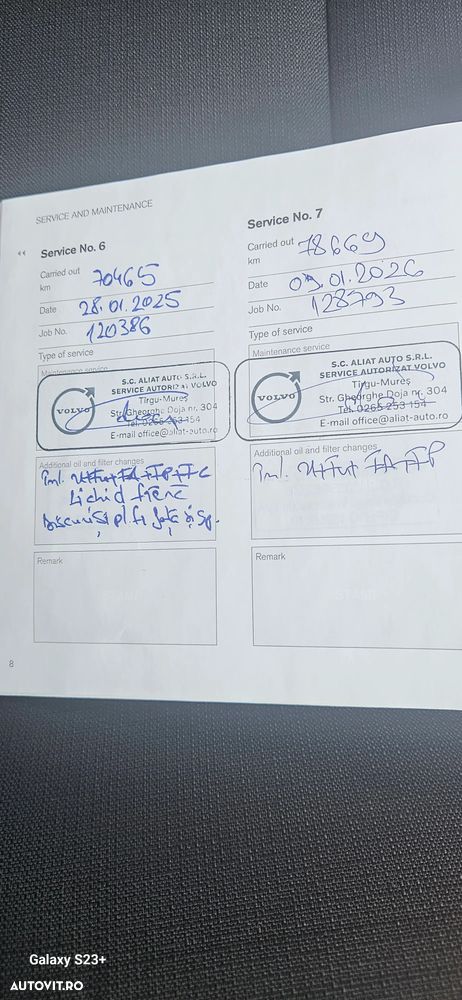 SERVICE AND MAINTENANCE
Service No. 6
Carried out 70465
km
Date 28.01.2025
Job No. 120386
Type of service
Maintenance service
VOLVO
S.C. ALIAT AUTO S.R.L.
SERVICE AUTORIZAT VOLVO
Tîrgu-Mureș
Str. Gheorghe Doja nr. 304
Tel. 0265 253 154
E-mail office@aliat-auto.ro
Additional oil and filter changes
Înl. U+Fu+FA+FP+FC
Lichid frână
Discuri și pl. fr. față și sp.
Remark
8
Service No. 7
Carried out 78669
km
Date 09.01.2026
Job No. 128793
Type of service
Maintenance service
VOLVO
S.C. ALIAT AUTO S.R.L.
SERVICE AUTORIZAT VOLVO
Tîrgu-Mureș
Str. Gheorghe Doja nr. 304
Tel. 0265 253 154
E-mail office@aliat-auto.ro
Additional oil and filter changes
Înl. U+Fu+FA+FP
Remark
Galaxy S23+
AUTOVIT.RO